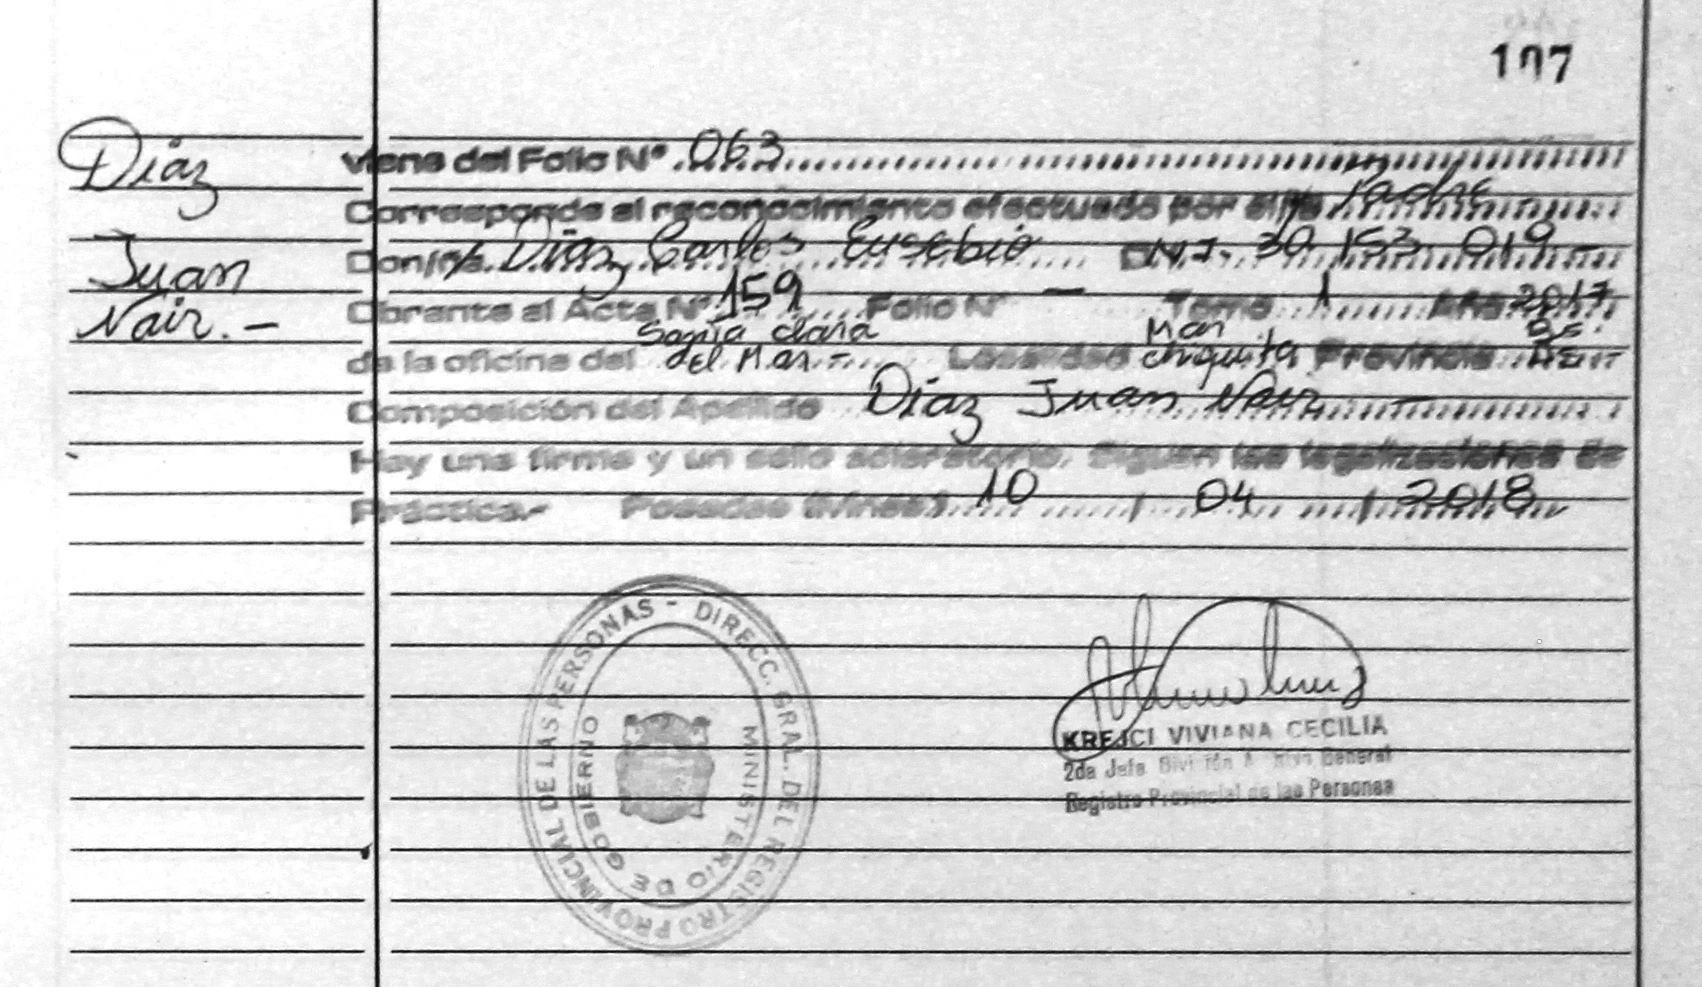 107
Díaz
Juan
Nair.-
viene del Folio Nº 063
Corresponde al reconocimiento efectuado por el/la Padre
Don/ña Díaz, Carlos Eusebio D.N.I. 30.153.019
Obrante al Acta Nº 159 Folio Nº — Tomo 1 Año 2017
de la oficina del Santa Clara del Mar.- Localidad Mar Chiquita Provincia Bs. As.-
Composición del Apellido Díaz Juan Nair
Hay una firma y un sello aclaratorio. Siguen las legalizaciones de
Práctica.- Posadas (Mnes.) 10 / 04 / 2018
DIRECC. GRAL. DEL REGISTRO PROVINCIAL DE LAS PERSONAS -
MINISTERIO DE GOBIERNO
KREJCI VIVIANA CECILIA
2da Jefa División Archivo General
Registro Provincial de las Personas